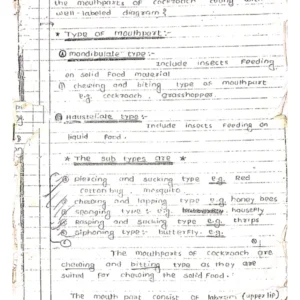 the mouthparts of cockroach along with
well-labeled diagram?
* Type of mouthpart:-
① mandibulate type:-
Include insects feeding
on solid food material
i) chewing and biting type of mouthpart
e.g. cockroach, grasshopper.
② Haustellate type:-
Include insects feeding on
liquid food.
* The sub types are *
① piercing and sucking type e.g. Red
cotton bug mosquito
② chewing and lapping type e.g. honey bees
③ sponging type: e.g. housefly
④ Rasping and sucking type e.g. thrips
⑤ siphoning type:- butterfly. e.g.
The mouthparts of cockroach are
chewing and bitting type as they are
suited for chewing the solid food.
The mouth part consist of labrum (upper lip)